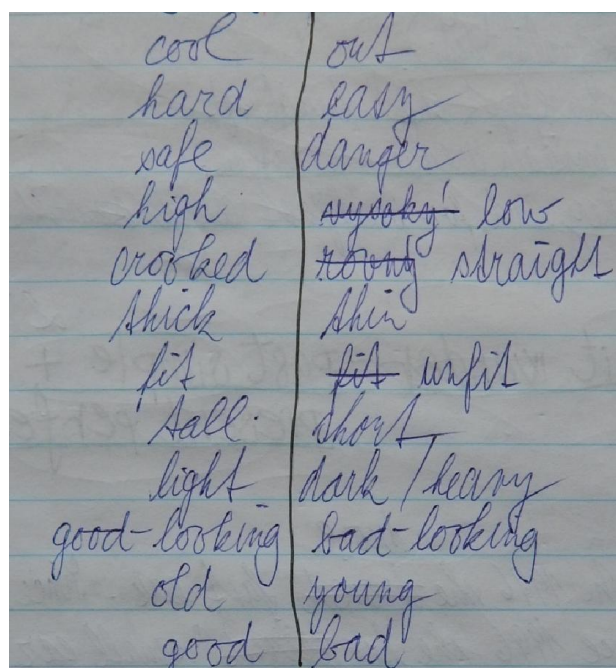 cool out
hard easy
safe danger
high vysoký low
crooked rovný straight
thick thin
fit fit unfit
tall short
light dark / heavy
good-looking bad-looking
old young
good bad